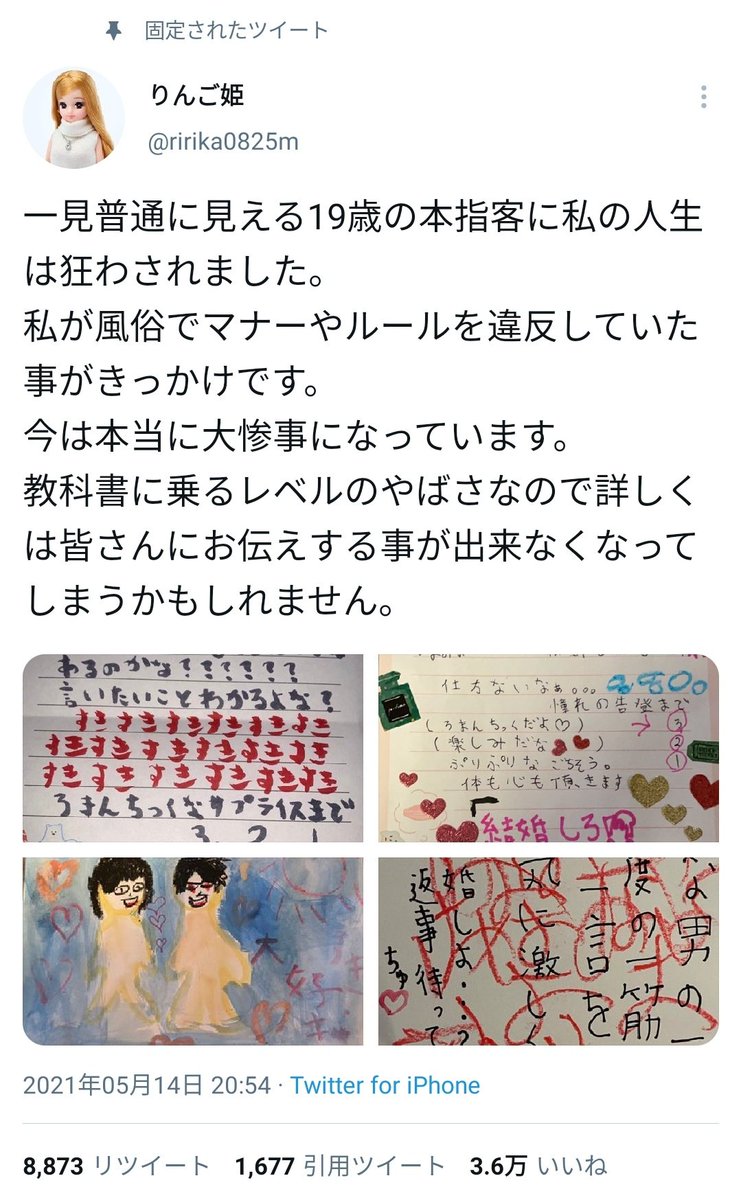 固定されたツイート
りんご姫
@ririka0825m
一見普通に見える19歳の本指客に私の人生
は狂わされました。
私が風俗でマナーやルールを違反していた
事がきっかけです。
今は本当に大惨事になっています。
教科書に乗るレベルのやばさなので詳しく
は皆さんにお伝えする事が出来なくなって
しまうかもしれません。
あるのかな??????
言いたいことわかるよな?
すきすきすきすきすきすき
すきすきすきすきすきすき
すきすきすきすきすきすき
ろまんちっくなサプライズまで
3 2 1
仕方ないなぁ。。。
憧れの告発まで
(ろまんちっくだよ♡) → ③
(楽しみだな) ②
ぷりぷりなごちそう。 ①
体も心も頂きます
結婚しろ
大好き
な男の一
度の一筋
一言を
に激しく
婚しよ・・?
返事待って
ちゅ
2021年05月14日 20:54 · Twitter for iPhone
8,873 リツイート 1,677 引用ツイート 3.6万 いいね